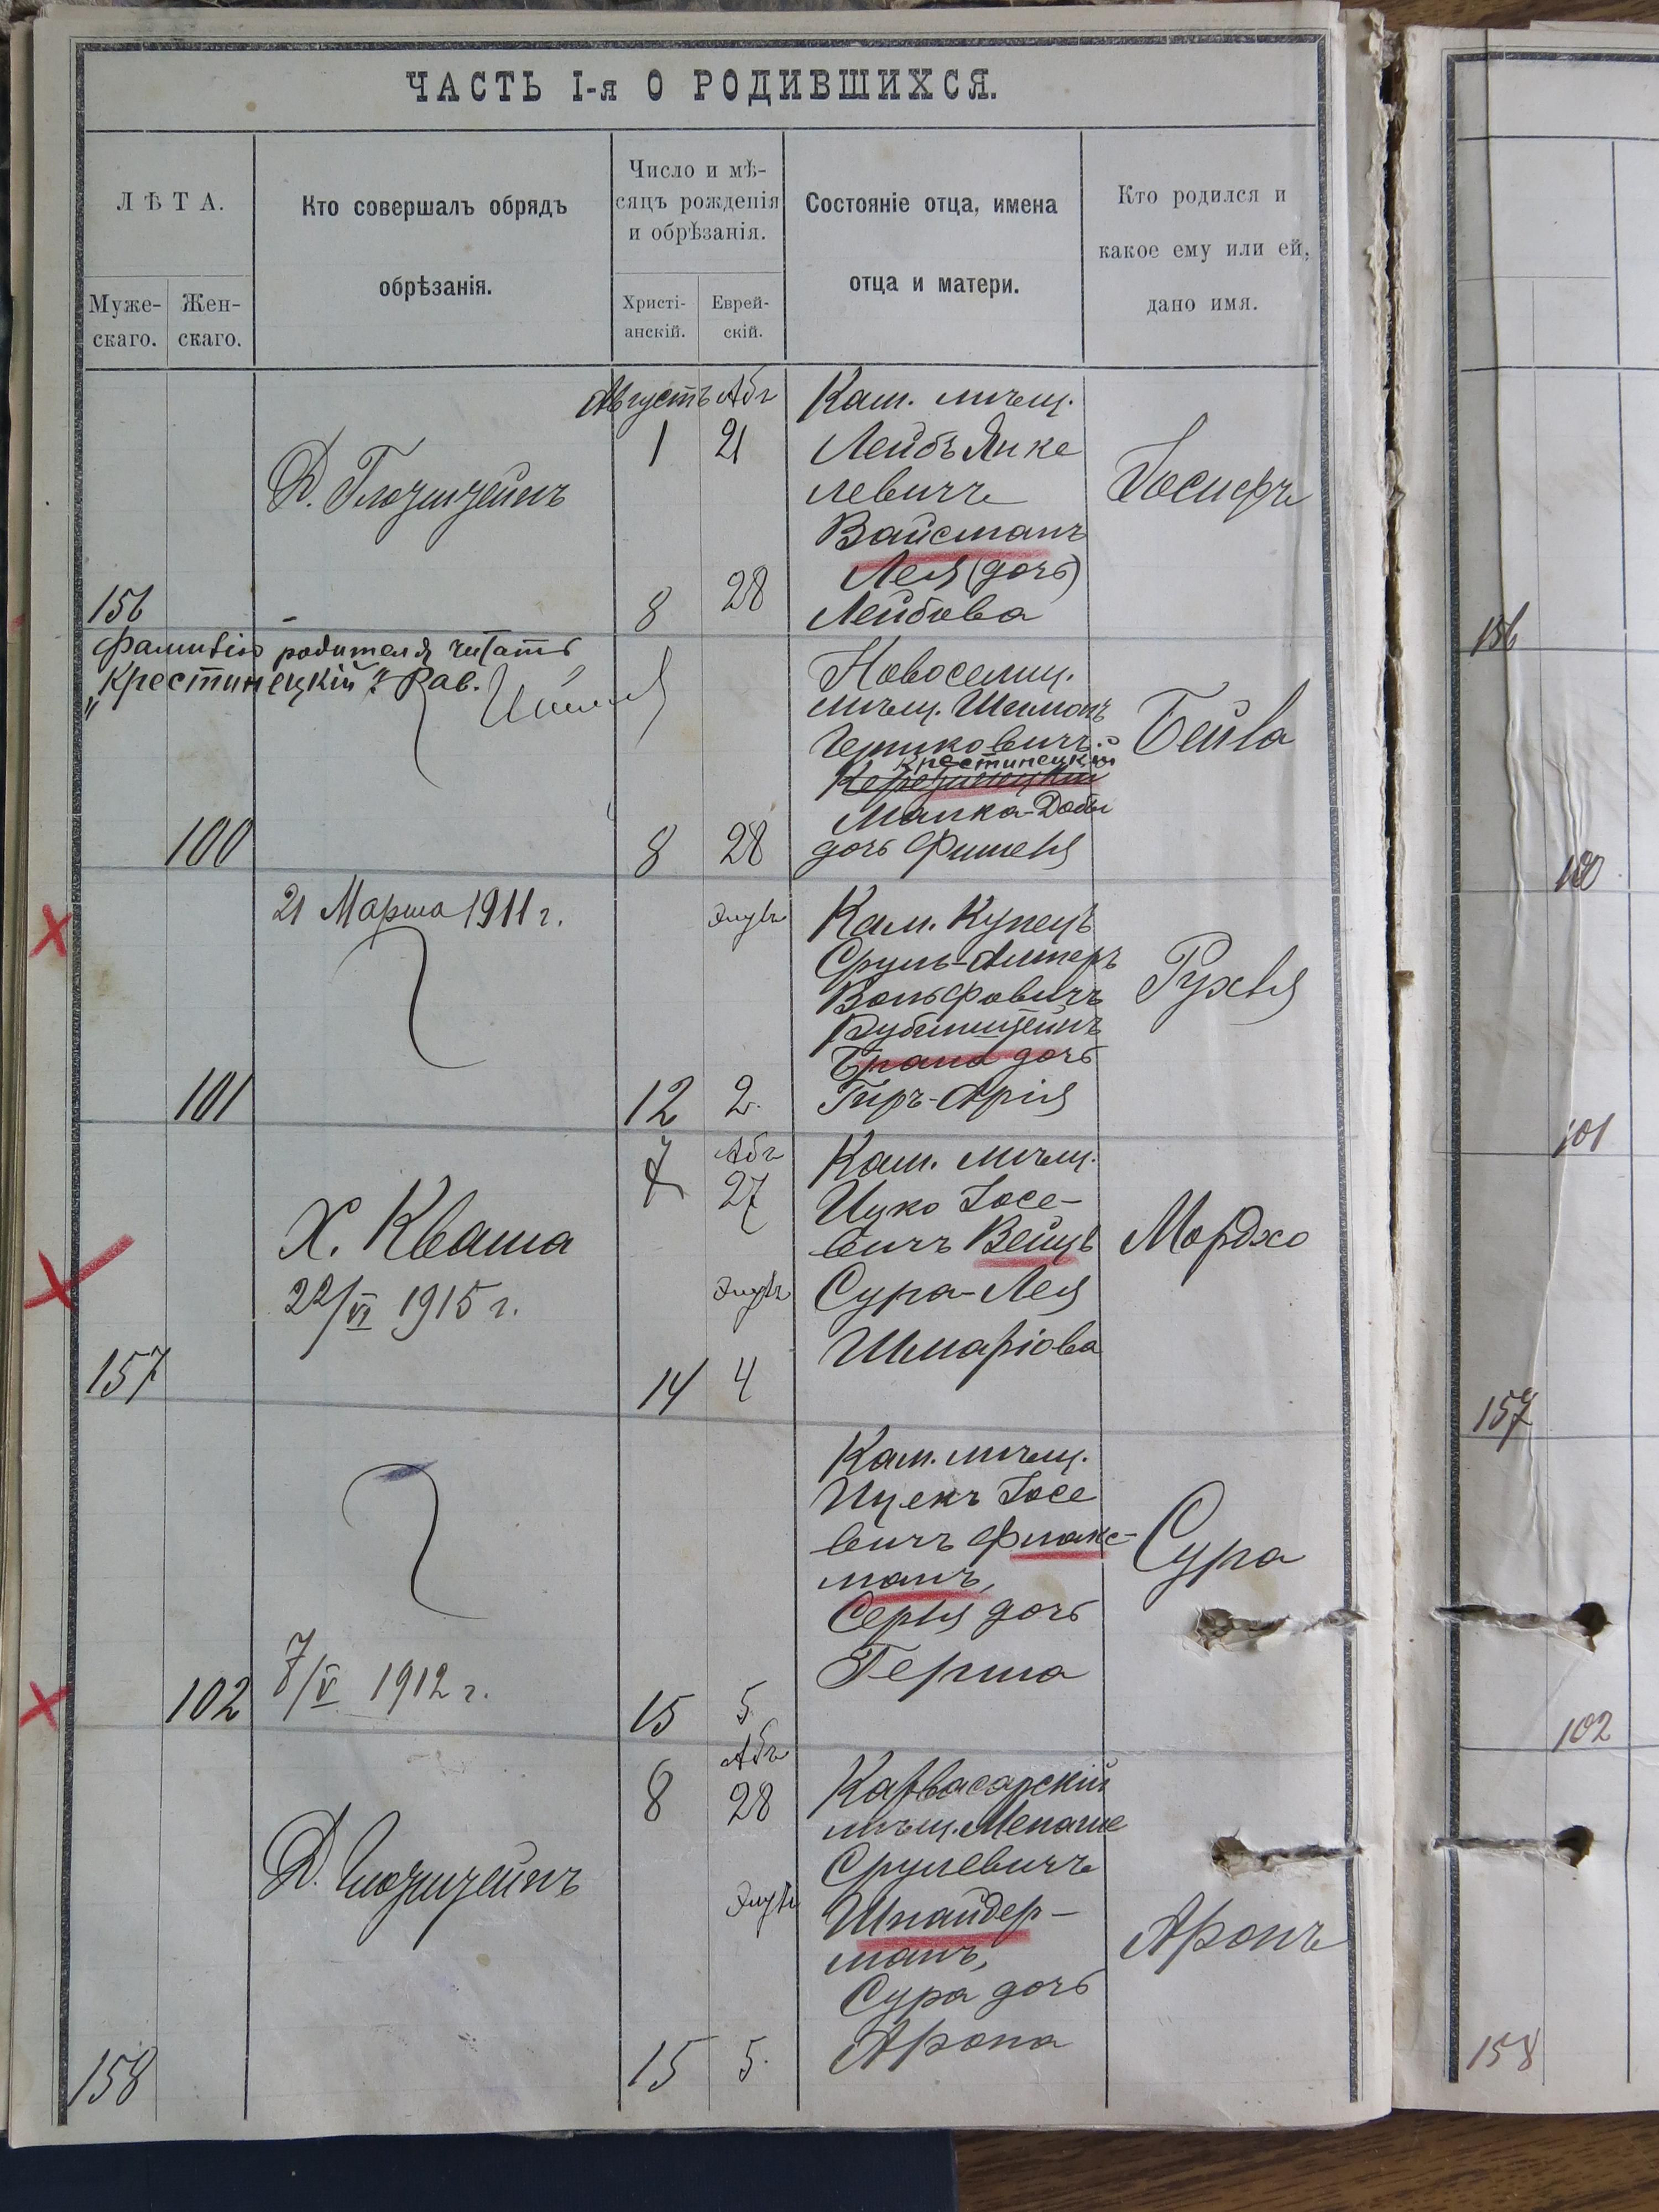 ЧАСТЬ I-я О РОДИВШИХСЯ.
ЛѢТА.
Муже-
скаго.
Жен-
скаго.
Кто совершалъ обрядъ
обрѣзанія.
Число и мѣ-
сяцъ рожденія
и обрѣзанія.
Христі-
анскій.
Еврей-
скій.
Состояніе отца, имена
отца и матери.
Кто родился и
какое ему или ей,
дано имя.
156
Д. Глозштейнъ
Августъ
1
8
Абъ
21
28
Кам. мѣщ.
Лейбъ Янке
левичъ
Вайсманъ
Лея (дочь)
Лейбова
Іосифъ
Фамилію родителя читать
„Крестинецкій“ Рав.
100
8
28
Новоселиц.
мѣщ. Шлимонъ
Гершковичъ
Крестинецкій
Малка-Добы
дочь Фишеля
Бейла
21 Марта 1911 г.
101
12
Элулъ
2.
Кам. Купецъ
Сруль-Алтеръ
Вольфовичъ
Рубинштейнъ
дочь
Гиръ-Арія
Рухля
157
Х. Кваша
22/VI 1915 г.
7
14
Абъ
27
Элулъ
4
Кам. мѣщ.
Ицко Іосе-
вичъ Вейцъ
Сура-Лея
Шмаріова
Мордхо
102
7/V 1912 г.
15
5
Кам. мѣщ.
Ицекъ Іосе
вичъ Флакс-
манъ,
Серля дочь
Герша
Сура
158
Д. Глозштейнъ
8
15
Абъ
28
Элулъ
5.
Карвасарскій
мѣщ. Менаше
Срулевичъ
Шнайдер-
манъ,
Сура дочь
Арона
Аронъ
156
100
101
157
102
158